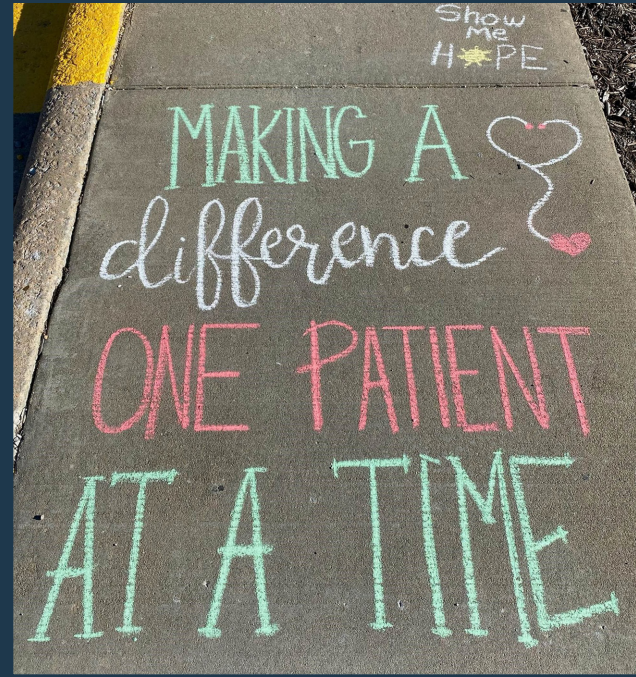 Show
Me
HOPE
MAKING A
difference
ONE PATIENT
AT A TIME